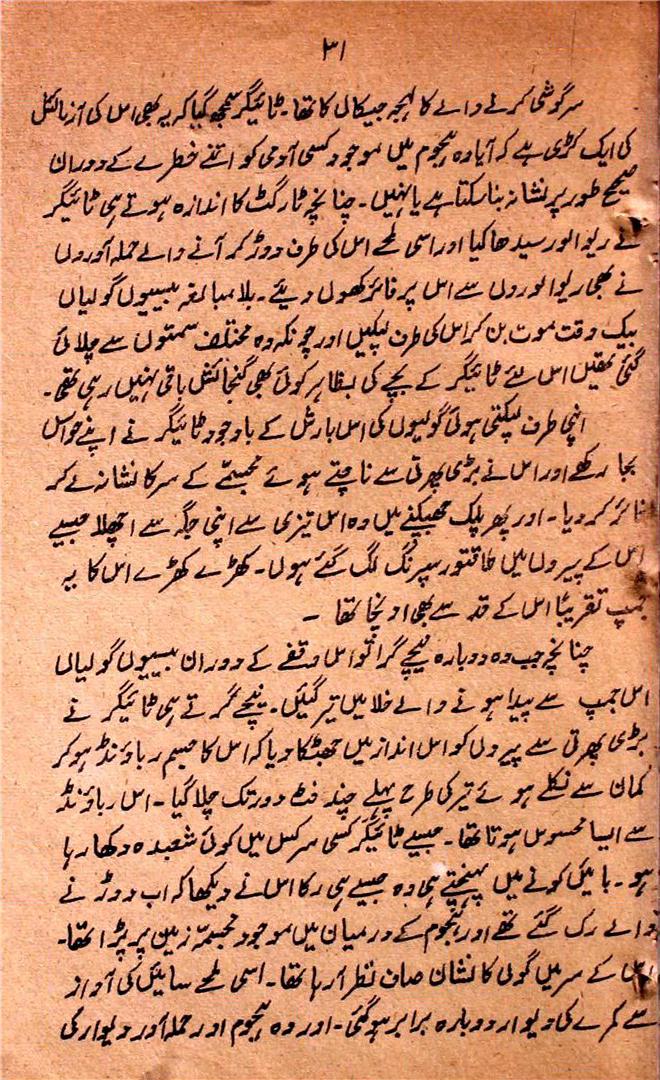 ۳۱
سرگوشی کرنے والے کا لہجہ جیکال کا تھا۔ ٹائیگر سمجھ گیا کہ یہ بھی اس کی آزمائش
کی ایک کڑی ہے کہ آیا وہ ہجوم میں موجود کسی آدمی کو اتنے خطرے کے دوران
صحیح طور پر نشانہ بنا سکتا ہے یا نہیں۔ چنانچہ ٹارگٹ کا اندازہ ہوتے ہی ٹائیگر
نے ریوالور سیدھا کیا اور اسی لمحے اس کی طرف دوڑ کر آنے والے حملہ آوروں
نے بھی ریوالوروں سے اس پر فائر کھول دیئے۔ بلا مبالغہ بیسیوں گولیاں
بیک وقت موت بن کر اس کی طرف لپکیں اور چونکہ وہ مختلف سمتوں سے چلائی
گئی تھیں اس لئے ٹائیگر کے بچنے کی بظاہر کوئی بھی گنجائش باقی نہیں رہی تھی۔
اپنی طرف لپکتی ہوئی گولیوں کی اس بارش کے باوجود ٹائیگر نے اپنے حواس
بجا رکھے اور اس نے بڑی پھرتی سے ناچتے ہوئے مجسمے کے سر کا نشانہ لے کر
فائر کر دیا۔ اور پھر پلک جھپکنے میں وہ اس تیزی سے اپنی جگہ سے اچھلا جیسے
اس کے پیروں میں طاقتور سپرنگ لگ گئے ہوں۔ کھڑے کھڑے اس کا یہ
جمپ تقریباً اس کے قد سے بھی اونچا تھا ۔
چنانچہ جب وہ دوبارہ نیچے گرا تو اس وقفے کے دوران بیسیوں گولیاں
اس جمپ سے پیدا ہونے والے خلا میں تیر گئیں۔ نیچے گرتے ہی ٹائیگر نے
بڑی پھرتی سے پیروں کو اس انداز میں جھٹکا دیا کہ اس کا جسم رباؤنڈ ہو کر
کمان سے نکلے ہوئے تیر کی طرح پہلے چند فٹ دور تک چلا گیا۔ اس رباؤنڈ
سے ایسا محسوس ہوتا تھا۔ جیسے ٹائیگر کسی سرکس میں کوئی شعبدہ دکھا رہا
ہو۔ بائیں کونے میں پہنچتے ہی وہ جیسے ہی رکا اس نے دیکھا کہ اب دوڑنے
والے رک گئے تھے اور ہجوم کے درمیان میں موجود مجسمہ زمین پر پڑا تھا۔
اس کے سر میں گولی کا نشان صاف نظر آ رہا تھا۔ اسی لمحے سائیں کی آواز
سے کمرے کی دیوار دوبارہ برابر ہو گئی۔ اور وہ ہجوم اور حملہ آور دیوار کی